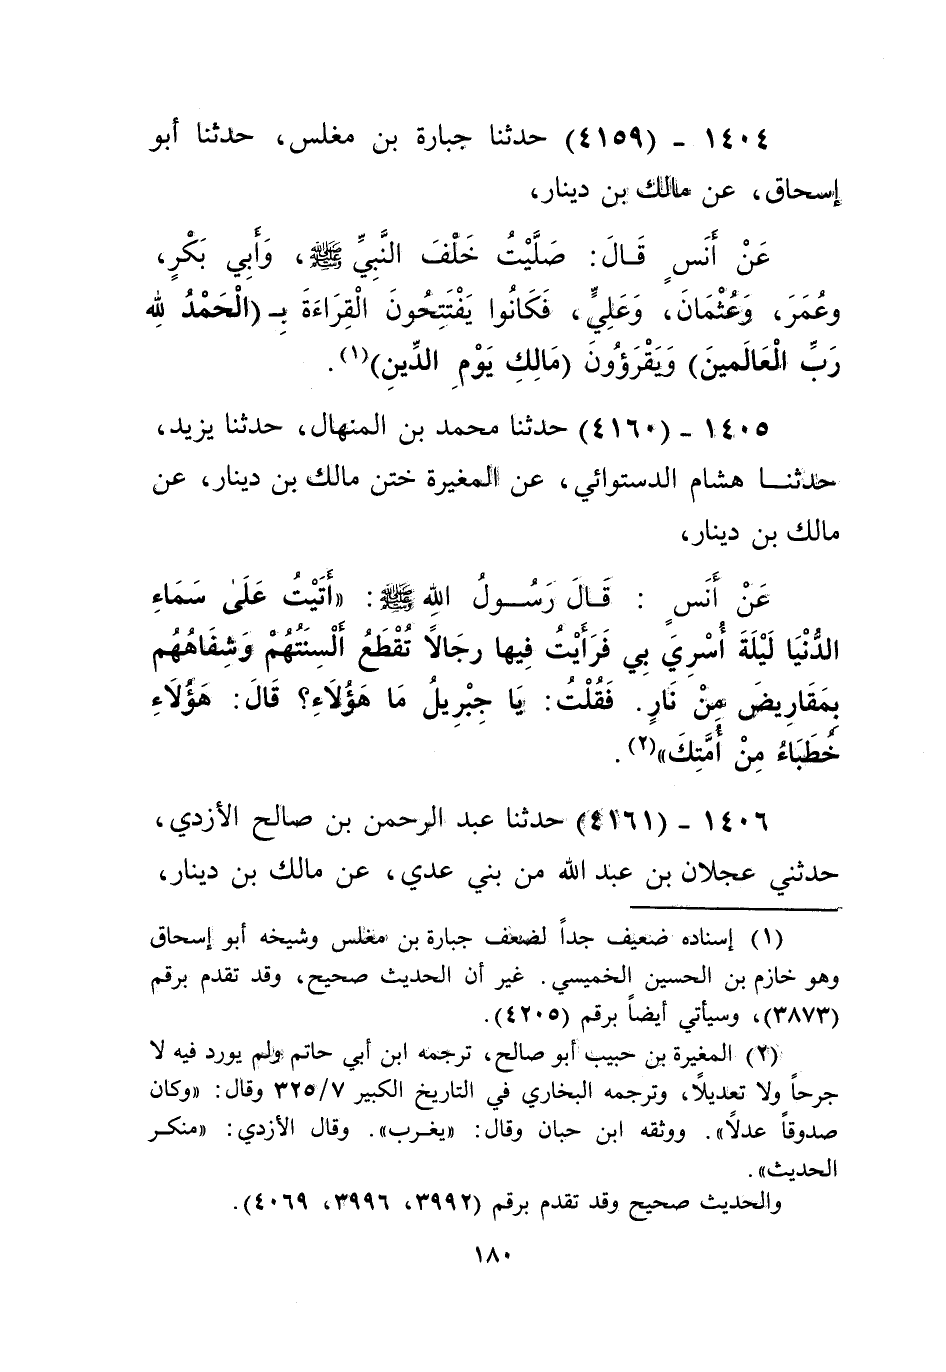 ١٤٠٤ - (٤١٥٩) حدثنا جبارة بن مغلس، حدثنا أبو
إسحاق، عن مالك بن دينار،
عَنْ أَنَسٍ قَالَ: صَلَّيْتُ خَلْفَ النَّبِيِّ ﷺ، وَأَبِي بَكْرٍ،
وعُمَرَ، وَعُثْمَانَ، وَعَلِيٍّ، فَكَانُوا يَفْتَتِحُونَ الْقِرَاءَةَ بِـ (الْحَمْدُ لِلهِ
رَبِّ الْعَالَمينَ) وَيَقْرَؤُونَ (مَالِكِ يَوْمِ الدِّينِ)(١).
١٤٠٥ - (٤١٦٠) حدثنا محمد بن المنهال، حدثنا يزيد،
حدثنـا هشام الدستوائي، عن المغيرة ختن مالك بن دينار، عن
مالك بن دينار،
عَنْ أَنَسٍ : قَـالَ رَسُـولُ اللهِ ﷺ: «أَتَيْتُ عَلَىٰ سَمَاءِ
الدُّنْيَا لَيْلَةَ أُسْرِيَ بِي فَرَأَيْتُ فِيها رجَالًا تُقْطَعُ أَلْسِنَتُهُمْ وَشِفَاهُهُم
بِمَقَارِيضَ مِنْ نَارٍ. فَقُلْتُ: يَا جِبْرِيلُ مَا هَؤُلَاءِ؟ قَالَ: هَؤُلَاءِ
خُطَبَاءُ مِنْ أُمَّتِكَ»(٢).
١٤٠٦ - (٤١٦١) حدثنا عبد الرحمن بن صالح الأزدي،
حدثني عجلان بن عبد الله من بني عدي، عن مالك بن دينار،
(١) إسناده ضعيف جداً لضعف جبارة بن مغلس وشيخه أبو إسحاق
وهو خازم بن الحسين الخميسي. غير أن الحديث صحيح، وقد تقدم برقم
(٣٨٧٣)، وسيأتي أيضاً برقم (٤٢٠٥).
(٢) المغيرة بن حبيب أبو صالح، ترجمه ابن أبي حاتم ولم يورد فيه لا
جرحاً ولا تعديلًا، وترجمه البخاري في التاريخ الكبير ٣٢٥/٧ وقال: «وكان
صدوقاً عدلًا». ووثقه ابن حبان وقال: «يغرب». وقال الأزدي: «منكر
الحديث».
والحديث صحيح وقد تقدم برقم (٣٩٩٢، ٣٩٩٦، ٤٠٦٩).
١٨٠